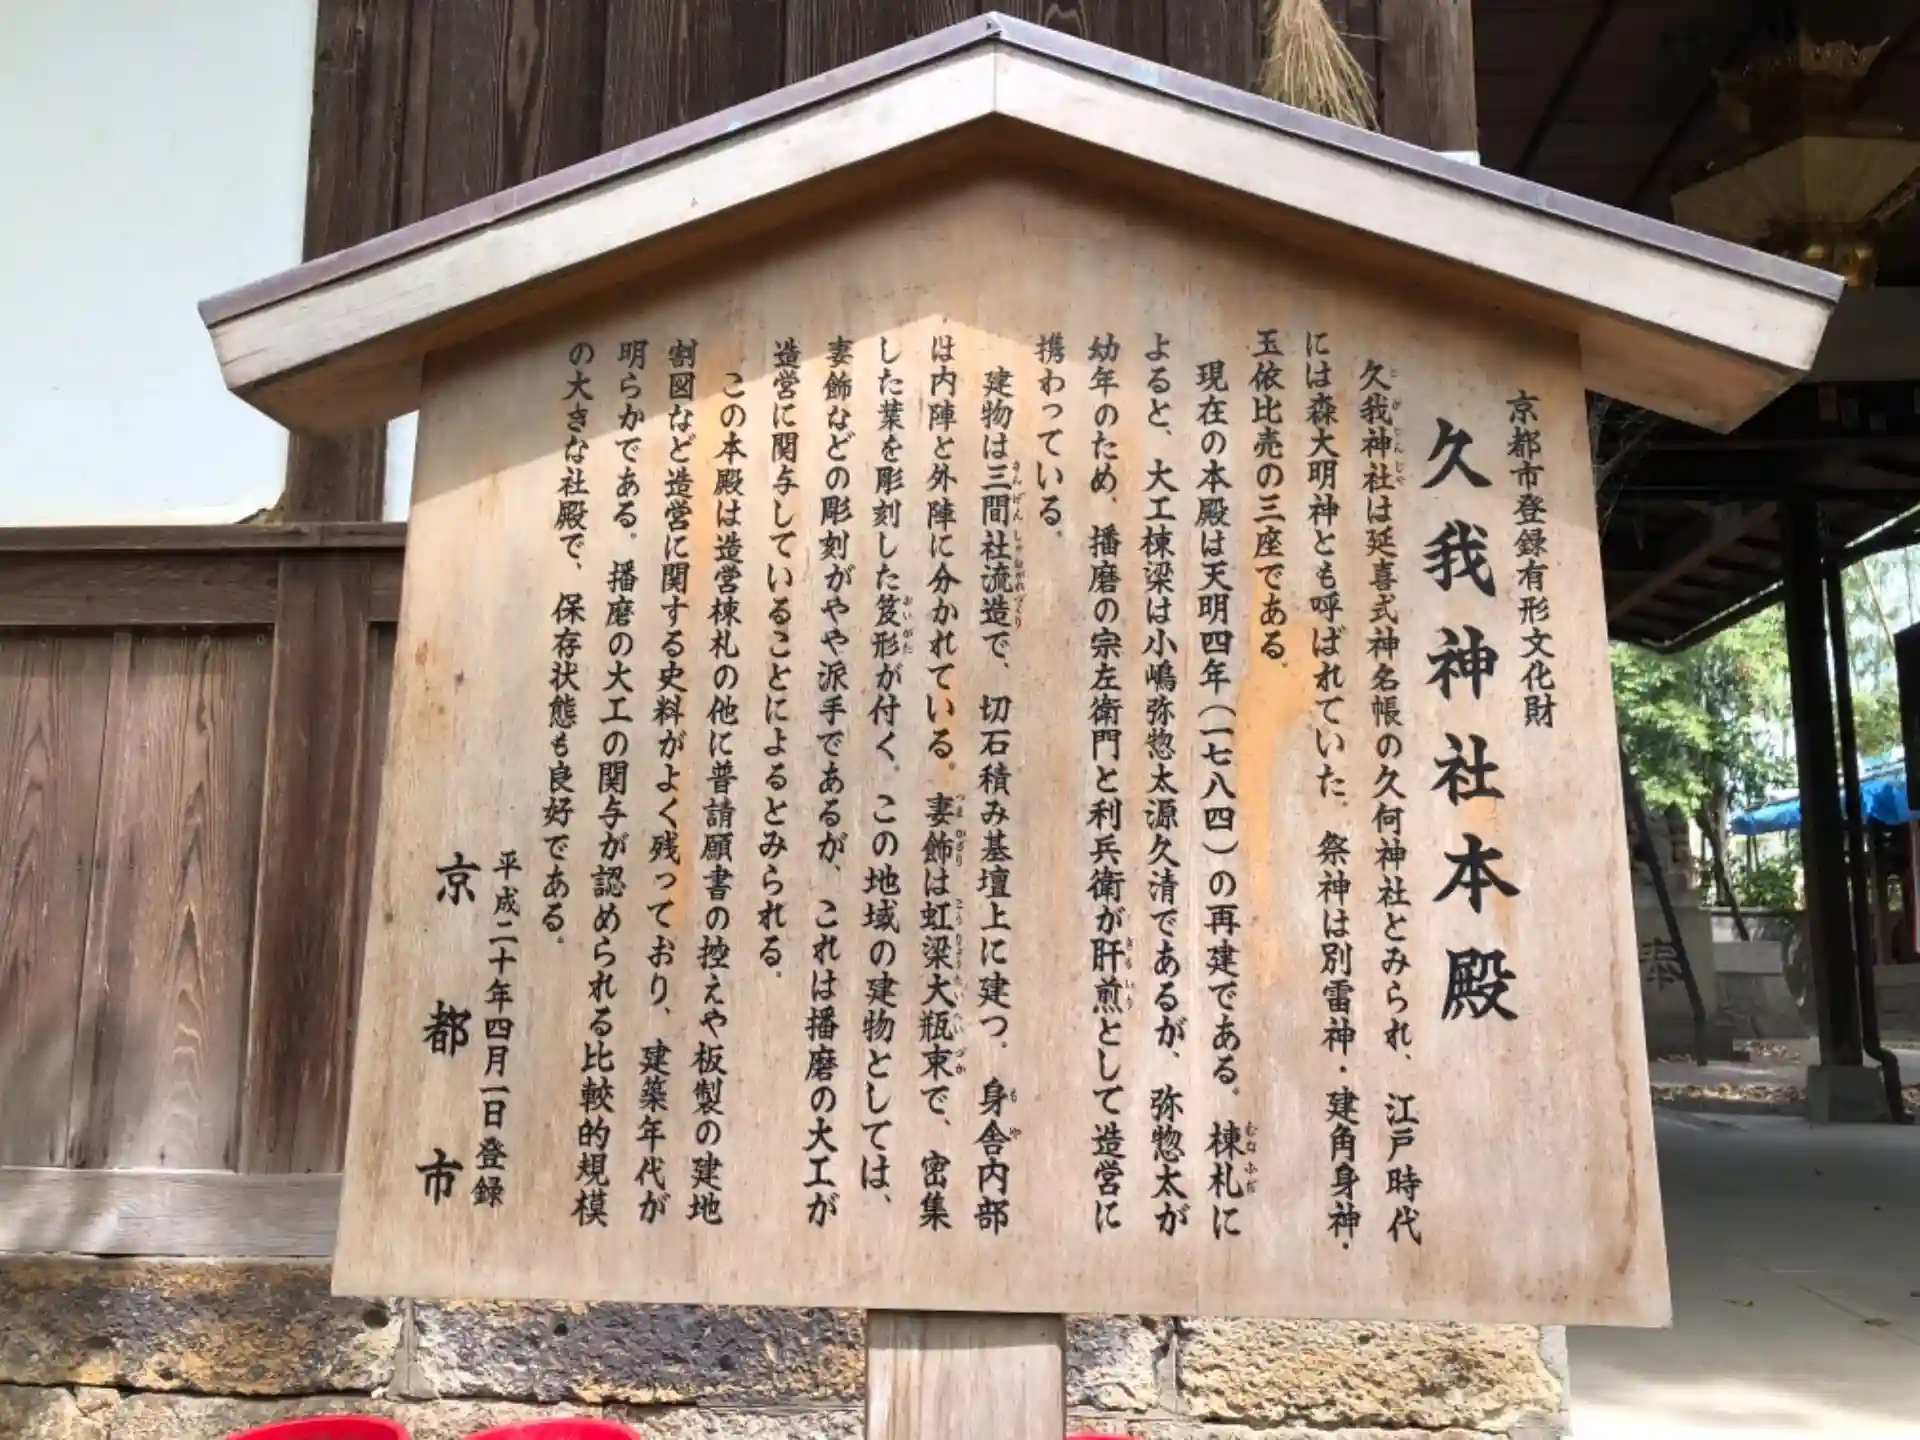 京都市登録有形文化財
久我神社本殿
久我神社は延喜式神名帳の久何神社とみられ、江戸時代
には森大明神とも呼ばれていた。祭神は別雷神・建角身神・
玉依比売の三座である。
現在の本殿は天明四年(一七八四)の再建である。棟札に
よると、大工棟梁は小嶋弥惣太源久清であるが、弥惣太が
幼年のため、播磨の宗左衛門と利兵衛が肝煎として造営に
携わっている。
建物は三間社流造で、切石積み基壇上に建つ。身舎内部
は内陣と外陣に分かれている。妻飾は虹梁大瓶束で、密集
した葉を彫刻した笈形が付く。この地域の建物としては、
妻飾などの彫刻がやや派手であるが、これは播磨の大工が
造営に関与していることによるとみられる。
この本殿は造営棟札の他に普請願書の控えや板製の建地
割図など造営に関する史料がよく残っており、建築年代が
明らかである。播磨の大工の関与が認められる比較的規模
の大きな社殿で、保存状態も良好である。
平成二十年四月一日登録
京都市